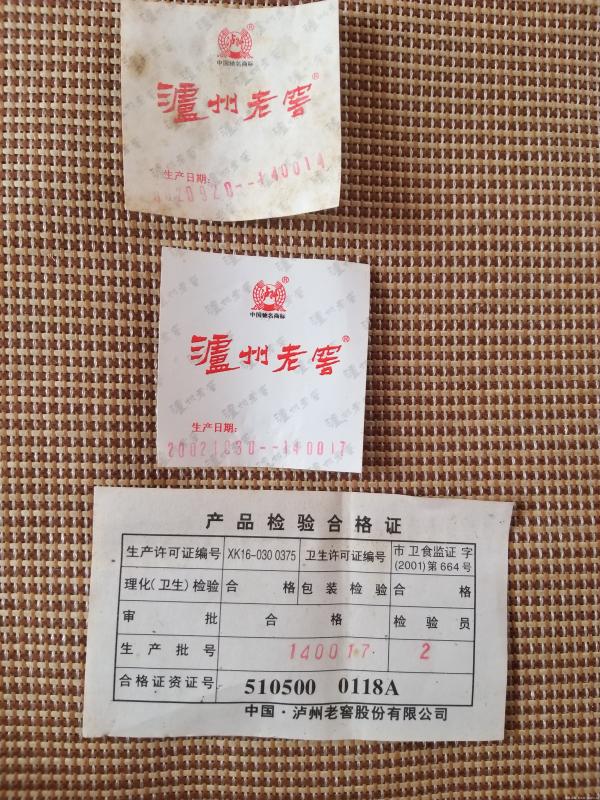 中国驰名商标
泸州老窖®
生产日期:
20020920--140014
®
中国驰名商标
泸州老窖®
生产日期:
20021030--140017
产品检验合格证
生产许可证编号 XK16-030 0375 卫生许可证编号 市卫食监证字(2001)第664号
理化(卫生)检验 合格 包装检验 合格
审批 合格 检验员
生产批号 140017 2
合格证资证号 510500 0118A
中国·泸州老窖股份有限公司